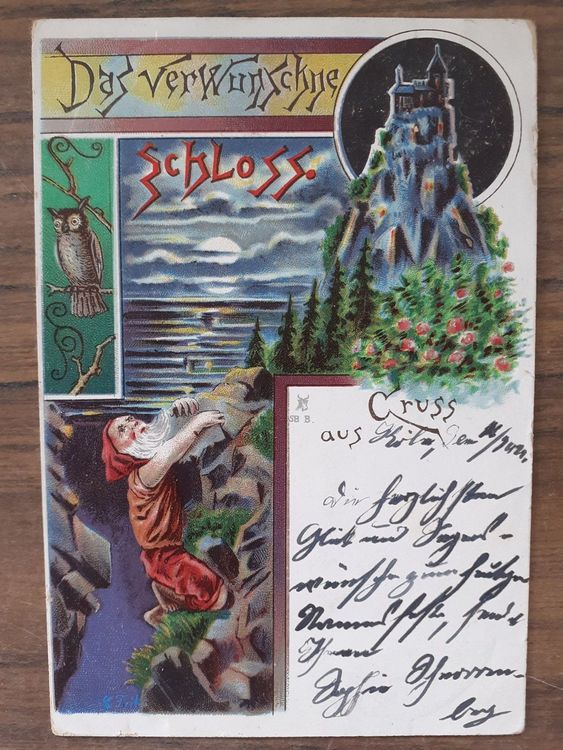 Das verwunschne
Schloss.
SB B.
Gruss
aus Köln, den
die herzlichsten
Glück und Segens-
wünsche zum heutigen
Namensfeste, sendet
Ihnen
Sophie Schnorren-
berg